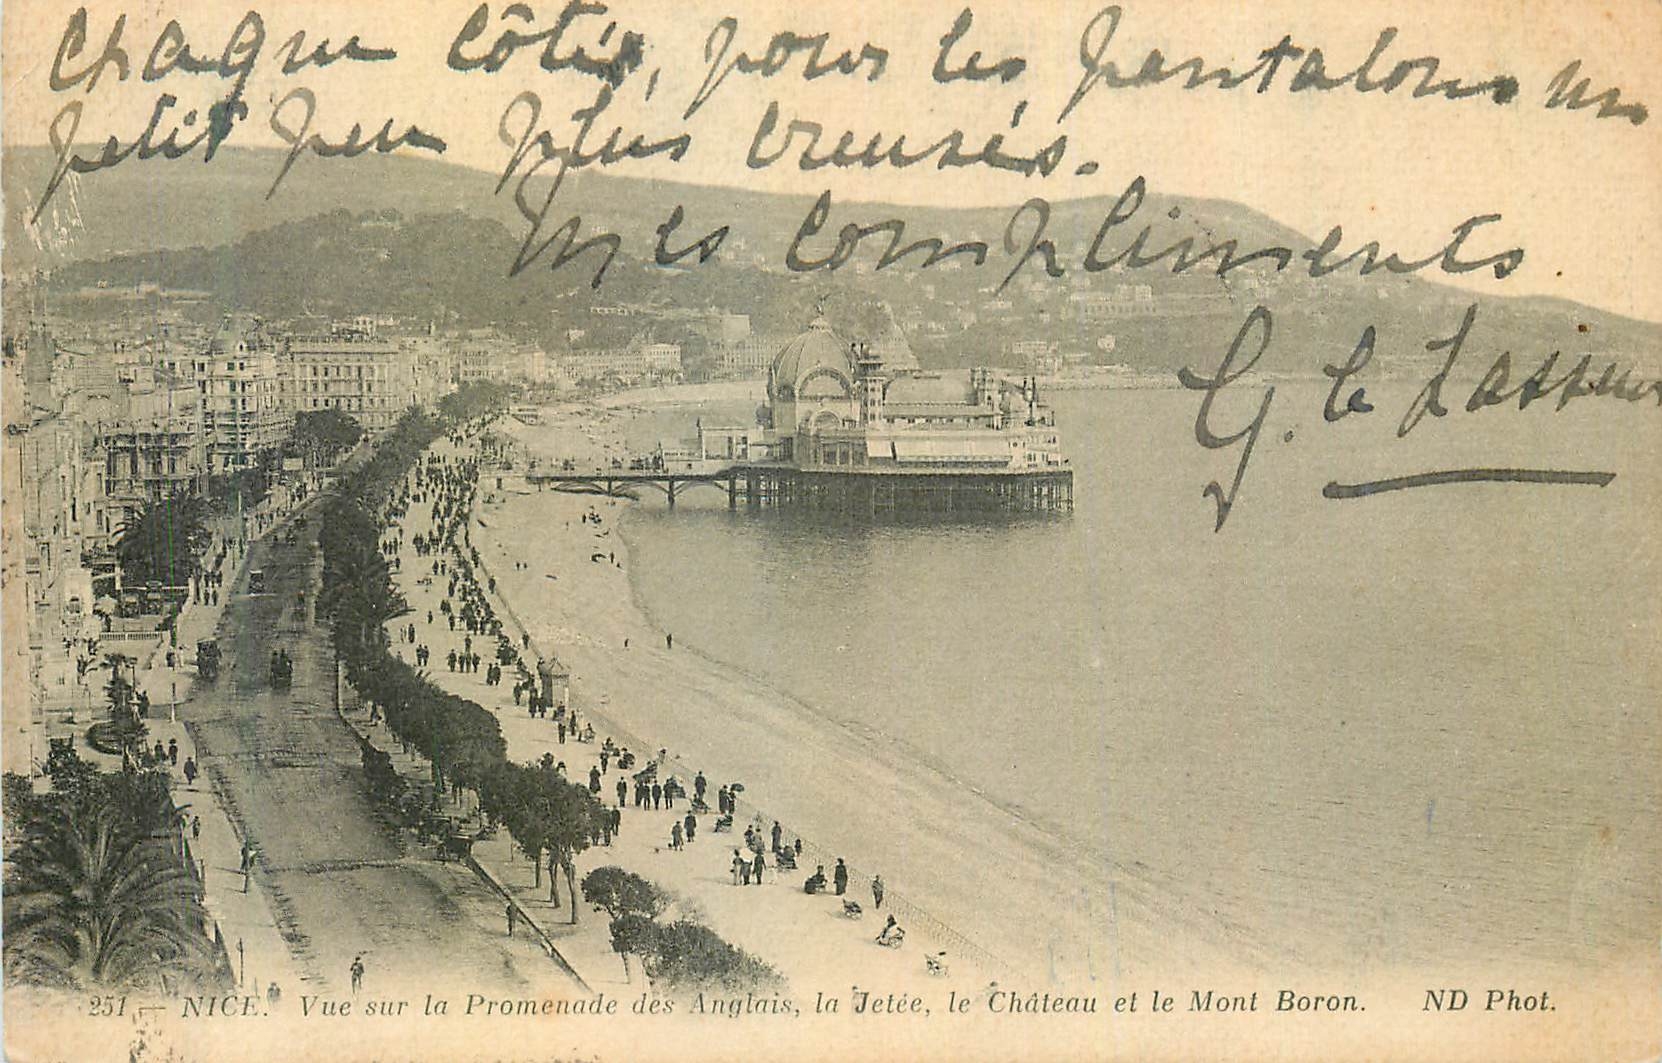 chaque côtés, pour les pantalons un
petit peu plus creusés.
Mes compliments.
G. le
251 — NICE. Vue sur la Promenade des Anglais, la Jetée, le Château et le Mont Boron. ND Phot.